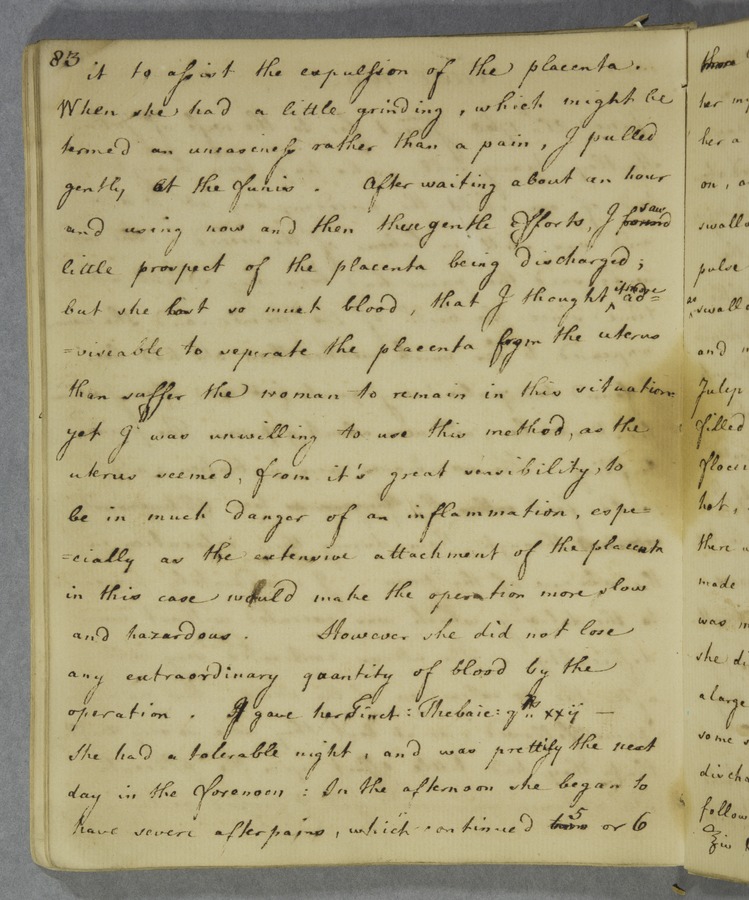 83
it to assist the expulsion of the placenta.
When she had a little grinding, which might be
termed an uneasiness rather than a pain, I pulled
gently at the funis. After waiting about an hour
and using now and then these gentle efforts, I found saw
little prospect of the placenta being discharged;
but she lost so much blood, that I thought it more ad=
=viseable to seperate the placenta from the uterus
than suffer the woman to remain in this situation
yet I was unwilling to use this method, as the
uterus seemed, from it's great sensibility, to
be in much danger of an inflammation, espe=
=cially as the extensive attachment of the placenta
in this case would make the operation more slow
and hazardous. However she did not lose
any extraordinary quantity of blood by the
operation. I gave her Tinct: Thebaic: xxij —
She had a tolerable night, and was prettily the next
day in the forenoon: In the afternoon she began to
have severe afterpains, which continued 5 or 6
her
her a
on, a
swall
pulse
as swall
and
Julep
filled
hot,
there
made
was
she di
a large
some
discha
follow